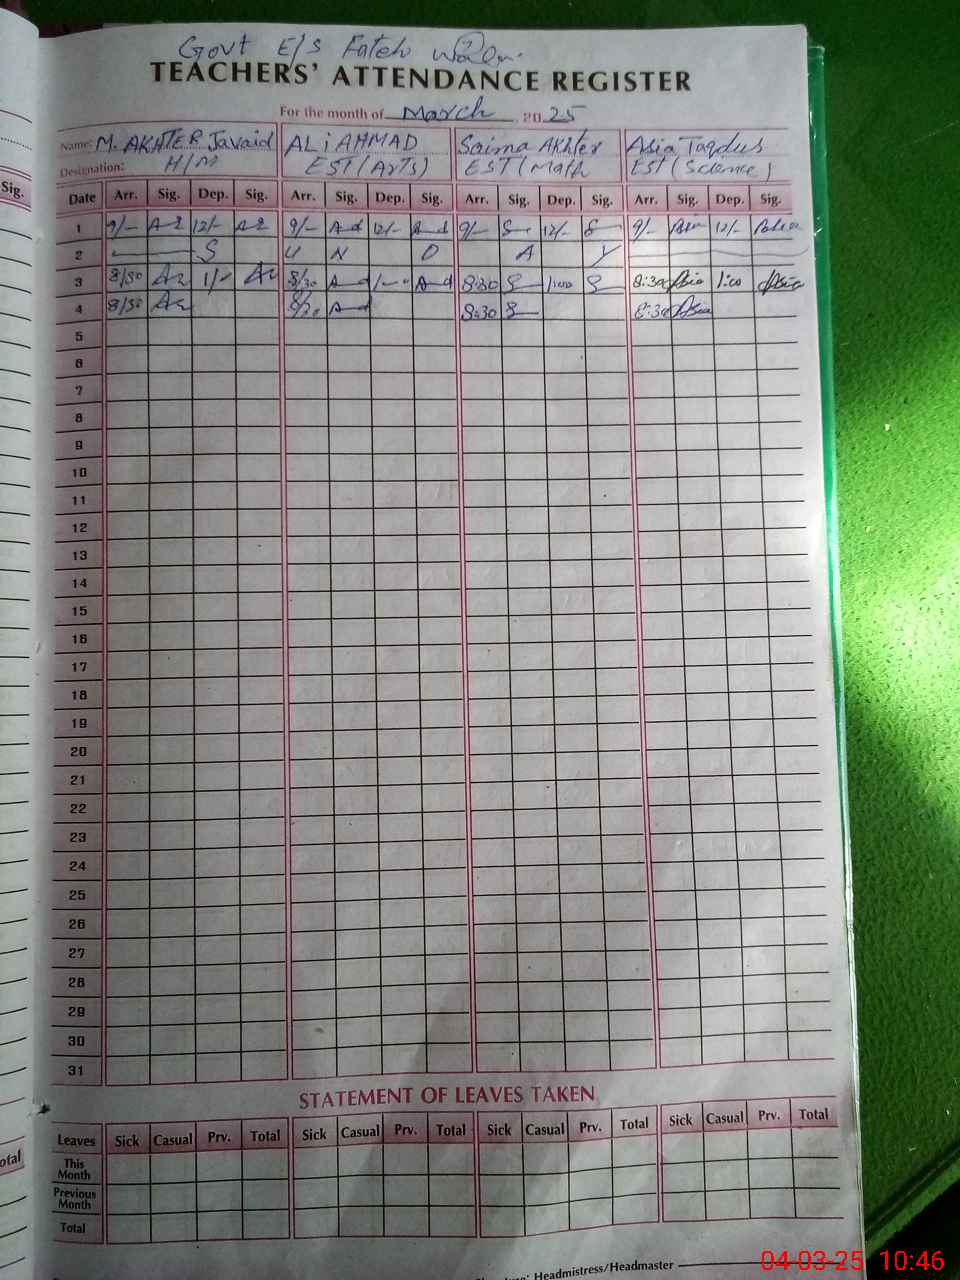 Govt E/S Fateh
TEACHERS' ATTENDANCE REGISTER
For the month of March 2025
Name: M. AKHTER Javaid ALi AHMAD Saima Akhter Asia Taqdus
Designation: H/M EST (Arts) EST (Math) EST (Science)
Sig.
Date Arr. Sig. Dep. Sig. Arr. Sig. Dep. Sig. Arr. Sig. Dep. Sig. Arr. Sig. Dep. Sig.
1 9/- 12/- 9/- A-d 12/- A-d 9/- S 12/- S 9/- Asia 12/-
2 S U N D A Y
3 8/30 1/- 8/30 A-d 1/-- A-d 8:30 S 1:00 S 8:30 Asia 1:00 Asia
4 8/30 8/30 A-d 8:30 S 8:30 Asia
5
6
7
8
9
10
11
12
13
14
15
16
17
18
19
20
21
22
23
24
25
26
27
28
29
30
31
STATEMENT OF LEAVES TAKEN
Leaves Sick Casual Prv. Total Sick Casual Prv. Total Sick Casual Prv. Total Sick Casual Prv. Total
This
Month
Previous
Month
Total
otal
Headmistress/Headmaster
04-03-25 10:46